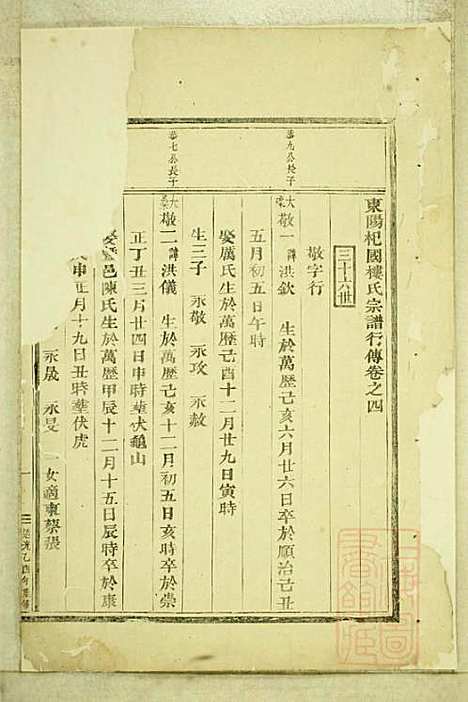 東陽杞國樓氏宗譜行傳卷之四
三十六世
敬字行
恭九公長子
敬一 諱洪欽 生於萬歷己亥六月廿六日卒於順治己丑
五月初五日午時
娶厲氏生於萬歷己酉十二月廿九日寅時
生三子 永敬 永攻 永赦
恭七公長子
敬二 諱洪儀 生於萬歷己亥十二月初五日亥時卒於崇
正丁丑三月廿四日申時葬伏龜山
娶暨邑陳氏生於萬歷甲辰十二月十五日辰時卒於康
申正月十九日丑時葬伏虎
永晟 永旻 一女適東蔡張